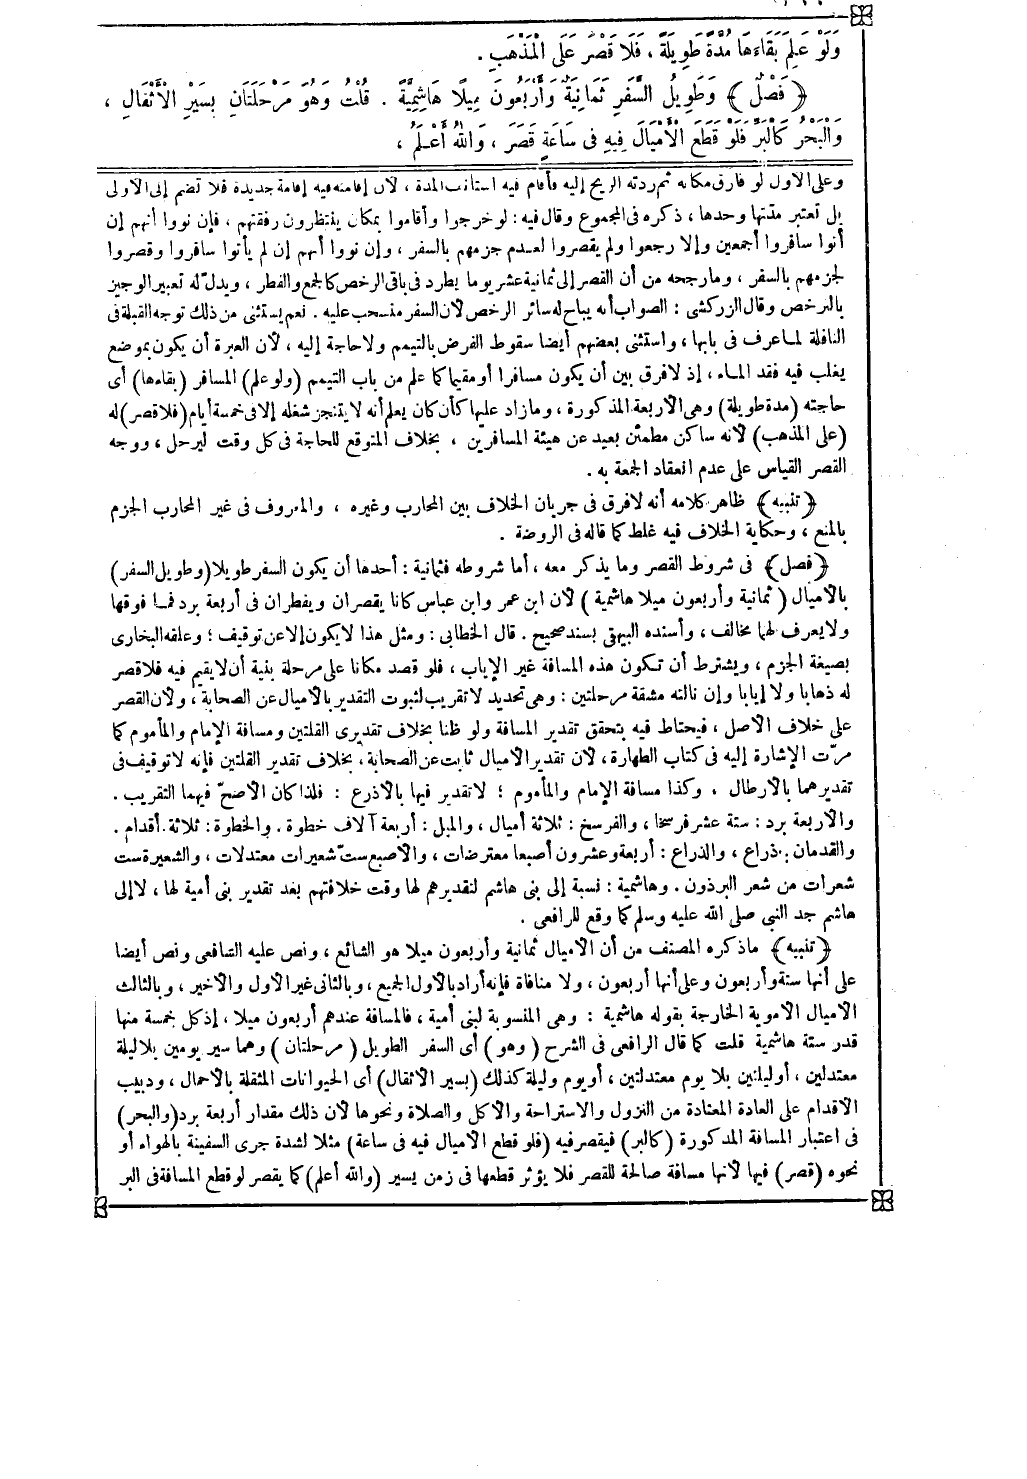 وَلَوْ عَلِمَ بَقَاءَهَا مُدَّةً طَوِيلَةً ، فَلَا قَصْرَ عَلَى الْمَذْهَبِ .
﴿ فَصْلٌ ﴾ وَطَوِيلُ السَّفَرِ ثَمَانِيَةٌ وَأَرْبَعُونَ مِيلًا هَاشِمِيَّةً . قُلْتُ وَهُوَ مَرْحَلَتَانِ بِسَيْرِ الْأَثْقَالِ ،
وَالْبَحْرُ كَالْبَرِّ فَلَوْ قَطَعَ الْأَمْيَالَ فِيهِ فِى سَاعَةٍ قَصَرَ ، وَاللهُ أَعْلَمُ ،
وعلى الأول لو فارق مكانه ثم ردته الريح إليه فأقام فيه استأنف المدة ، لأن إقامته فيه إقامة جديدة فلا تضم إلى الأولى
بل تعتبر مدتها وحدها ، ذكره فى المجموع وقال فيه : لو خرجوا وأقاموا بمكان ينتظرون رفقتهم ، فإن نووا أنهم إن
أتوا سافروا أجمعين وإلا رجعوا ولم يقصروا لعدم جزمهم بالسفر ، وإن نووا أنهم إن لم يأتوا سافروا وقصروا
لجزمهم بالسفر ، وما رجحه من أن القصر إلى ثمانية عشر يوما يطرد فى باقى الرخص كالجمع والفطر ، ويدلّ له تعبير الوجيز
بالترخص وقال الزركشى : الصواب أنه يباح له سائر الرخص لأن السفر منسحب عليه . نعم يستثنى من ذلك توجه القبلة فى
النافلة لما عرف فى بابها ، واستثنى بعضهم أيضا سقوط الفرض بالتيمم ولا حاجة إليه ، لأن العبرة أن يكون بموضع
يغلب فيه فقد الماء ، إذ لا فرق بين أن يكون مسافرا أو مقيما كما علم من باب التيمم (ولو علم) المسافر (بقاءها) أى
حاجته (مدة طويلة) وهى الأربعة المذكورة ، وما زاد عليها كأن كان يعلم أنه لا يتنجز شغله إلا فى خمسة أيام (فلا قصر) له
(على المذهب) لأنه ساكن مطمئن بعيد عن هيئة المسافرين ، بخلاف المتوقع للحاجة فى كل وقت ليرحل ، ووجه
القصر القياس على عدم انعقاد الجمعة به .
﴿ تنبيه ﴾ ظاهر كلامه أنه لا فرق فى جريان الخلاف بين المحارب وغيره ، والمعروف فى غير المحارب الجزم
بالمنع ، وحكاية الخلاف فيه غلط كما قاله فى الروضة .
﴿ فصل ﴾ فى شروط القصر وما يذكر معه ، أما شروطه فثمانية : أحدها أن يكون السفر طويلا (وطويل السفر)
بالأميال ( ثمانية وأربعون ميلا هاشمية ) لأن ابن عمر وابن عباس كانا يقصران ويفطران فى أربعة برد فما فوقها
ولا يعرف لهما مخالف ، وأسنده البيهقى بسند صحيح . قال الخطابى : ومثل هذا لا يكون إلا عن توقيف ؛ وعلقه البخارى
بصيغة الجزم ، ويشترط أن تكون هذه المسافة غير الإياب ، فلو قصد مكانا على مرحلة بنية أن لا يقيم فيه فلا قصر
له ذهابا ولا إيابا وإن نالته مشقة مرحلتين : وهى تحديد لا تقريب لثبوت التقدير بالأميال عن الصحابة ، ولأن القصر
على خلاف الأصل ، فيحتاط فيه بتحقق تقدير المسافة ولو ظنا بخلاف تقديرى القلتين ومسافة الإمام والمأموم كما
مرّت الإشارة إليه فى كتاب الطهارة ، لأن تقدير الأميال ثابت عن الصحابة ، بخلاف تقدير القلتين فإنه لا توقيف فى
تقديرهما بالأرطال ، وكذا مسافة الإمام والمأموم ؛ لا تقدير فيها بالأذرع : فلذا كان الأصحّ فيهما التقريب .
والأربعة برد : ستة عشر فرسخا ، والفرسخ : ثلاثة أميال ، والميل : أربعة آلاف خطوة . والخطوة : ثلاثة أقدام .
والقدمان : ذراع ، والذراع : أربعة وعشرون أصبعا معترضات ، والأصبع ستّ شعيرات معتدلات ، والشعيرة ست
شعرات من شعر البرذون . وهاشمية : نسبة إلى بنى هاشم لتقديرهم لها وقت خلافتهم بعد تقدير بنى أمية لها ، لا إلى
هاشم جد النبى صلى الله عليه وسلم كما وقع للرافعى .
﴿ تنبيه ﴾ ما ذكره المصنف من أن الأميال ثمانية وأربعون ميلا هو الشائع ، ونص عليه الشافعى ونص أيضا
على أنها ستة وأربعون وعلى أنها أربعون ، ولا منافاة فإنه أراد بالأول الجميع ، وبالثانى غير الأول والأخير ، وبالثالث
الأميال الأموية الخارجة بقوله هاشمية : وهى المنسوبة لبنى أمية ، فالمسافة عندهم أربعون ميلا ، إذ كل خمسة منها
قدر ستة هاشمية قلت كما قال الرافعى فى الشرح ( وهو ) أى السفر الطويل ( مرحلتان ) وهما سير يومين بلا ليلة
معتدلين ، أو ليلتين بلا يوم معتدلتين ، أو يوم وليلة كذلك (بسير الأثقال) أى الحيوانات المثقلة بالأحمال ، ودبيب
الأقدام على العادة المعتادة من النزول والاستراحة والأكل والصلاة ونحوها لأن ذلك مقدار أربعة برد (والبحر)
فى اعتبار المسافة المذكورة (كالبر) فيقصر فيه (فلو قطع الأميال فيه فى ساعة) مثلا لشدة جرى السفينة بالهواء أو
نحوه (قصر) فيها لأنها مسافة صالحة للقصر فلا يؤثر قطعها فى زمن يسير (والله أعلم) كما يقصر لو قطع المسافة فى البر